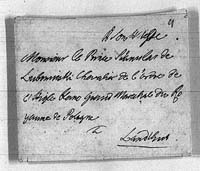 A Son Altesse
Monsieur le Prince Stanislas de
Lubomirski Chevalier de l'ordre de
l'Aigle blanc Grand Marechal du Ro
yaume de Pologne
a
Landshut